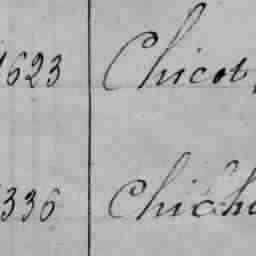 1623 Chicot,
336 Chich